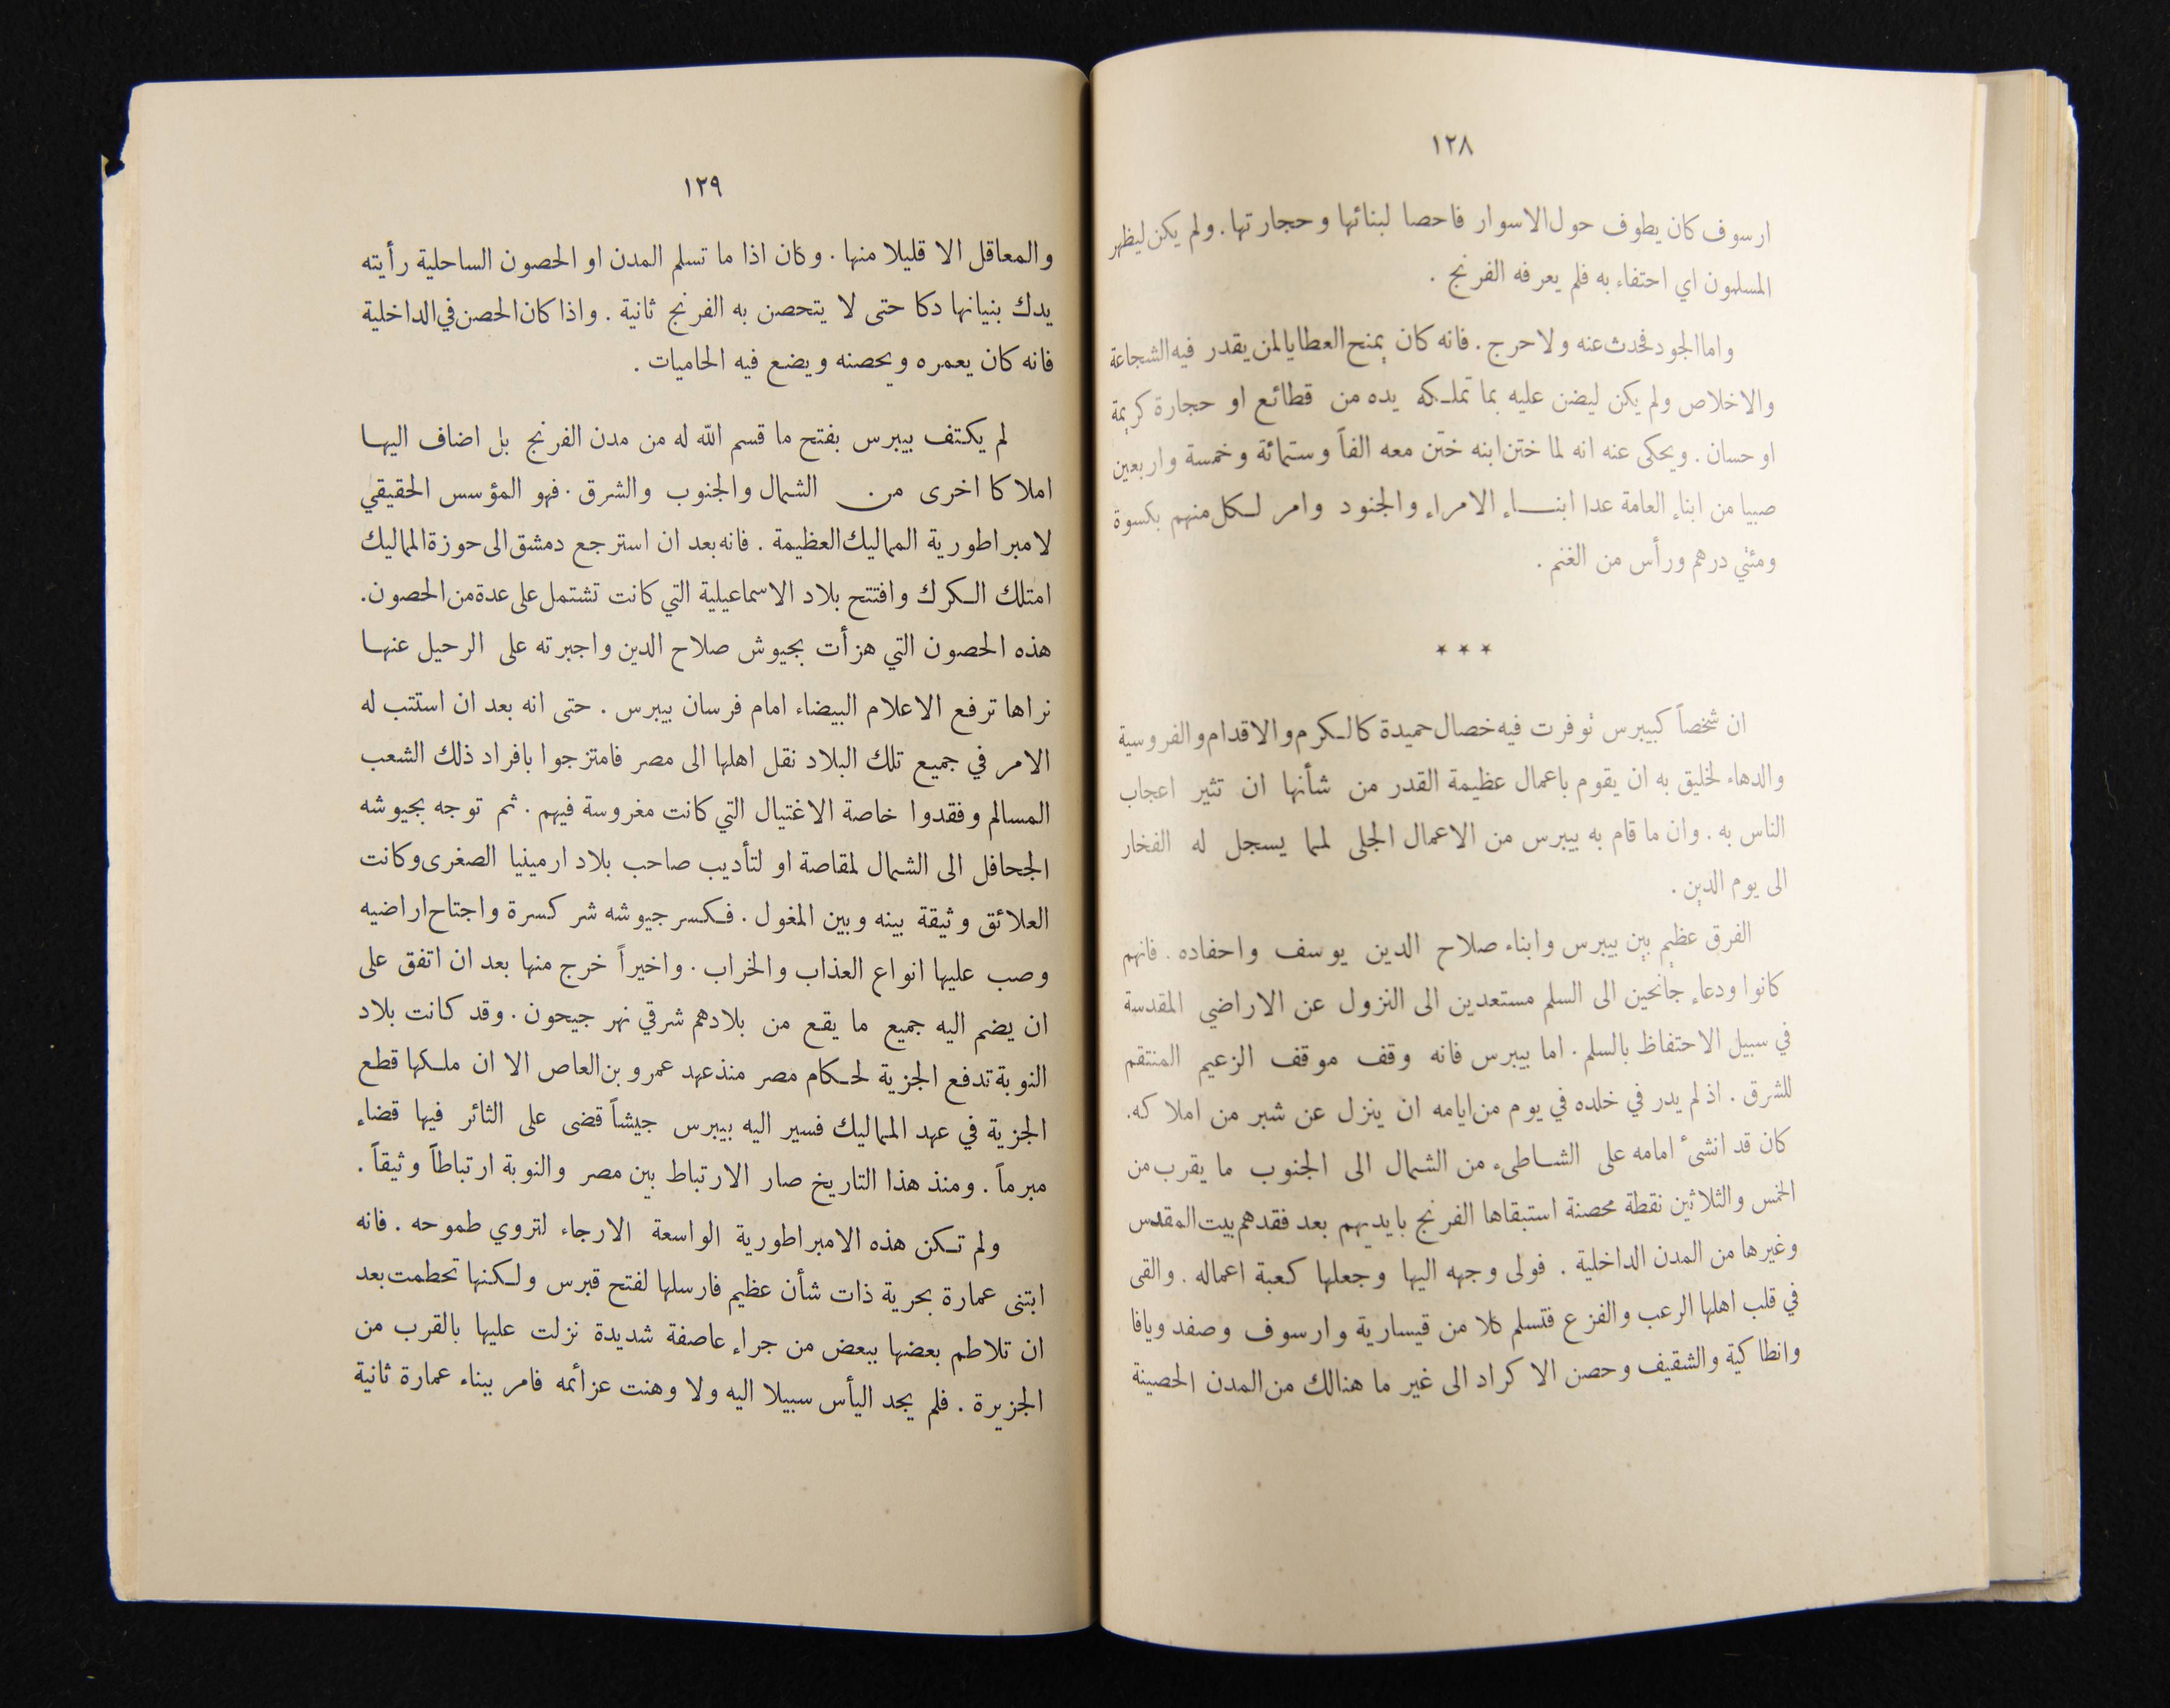 ١٢٨
ارسوف كان يطوف حول الاسوار فاحصا لبنائها وحجارتها. ولم يكن ليظهر
المسلمون اي احتفاء به فلم يعرفه الفرنج .
واما الجود فحدث عنه ولا حرج . فانه كان يمنح العطايا لمن يقدر فيه الشجاعة
والاخلاص ولم يكن ليضن عليه بما تملكه يده من قطائع او حجارة كريمة
او حسان . ويحكى عنه انه لما ختن ابنه ختن معه الفاً وستمائة وخمسة واربعين
صبيا من ابناء العامة عدا ابناء الامراء والجنود وامر لكل منهم بكسوة
ومئتي درهم ورأس من الغنم .
* * *
ان شخصاً كبيبرس توفرت فيه خصال حميدة كالكرم والاقدام والفروسية
والدهاء لخليق به ان يقوم باعمال عظيمة القدر من شأنها ان تثير اعجاب
الناس به . وان ما قام به بيبرس من الاعمال الجلى لمما يسجل له الفخار
الى يوم الدين .
الفرق عظيم بين بيبرس وابناء صلاح الدين يوسف واحفاده . فانهم
كانوا ودعاء جانحين الى السلم مستعدين الى النزول عن الاراضي المقدسة
في سبيل الاحتفاظ بالسلم . اما بيبرس فانه وقف موقف الزعيم المنتقم
للشرق . اذ لم يدر في خلده في يوم من ايامه ان ينزل عن شبر من املاكه.
كان قد انشئ امامه على الشاطىء من الشمال الى الجنوب ما يقرب من
الخمس والثلاثين نقطة محصنة استبقاها الفرنج بايديهم بعد فقدهم بيت المقدس
وغيرها من المدن الداخلية . فولى وجهه اليها وجعلها كعبة اعماله . والقى
في قلب اهلها الرعب والفزع فتسلم كلا من قيسارية وارسوف وصفد ويافا
وانطاكية والشقيف وحصن الاكراد الى غير ما هنالك من المدن الحصينة
١٢٩
والمعاقل الا قليلا منها . وكان اذا ما تسلم المدن او الحصون الساحلية رأيته
يدك بنيانها دكا حتى لا يتحصن به الفرنج ثانية . واذا كان الحصن في الداخلية
فانه كان يعمره ويحصنه ويضع فيه الحاميات .
لم يكتف بيبرس بفتح ما قسم الله له من مدن الفرنج بل اضاف اليها
املاكا اخرى من الشمال والجنوب والشرق . فهو المؤسس الحقيقي
لامبراطورية المماليك العظيمة . فانه بعد ان استرجع دمشق الى حوزة المماليك
امتلك الكرك وافتتح بلاد الاسماعيلية التي كانت تشتمل على عدة من الحصون.
هذه الحصون التي هزأت بجيوش صلاح الدين واجبرته على الرحيل عنها
نراها ترفع الاعلام البيضاء امام فرسان بيبرس . حتى انه بعد ان استتب له
الامر في جميع تلك البلاد نقل اهلها الى مصر فامتزجوا بافراد ذلك الشعب
المسالم وفقدوا خاصة الاغتيال التي كانت مغروسة فيهم . ثم توجه بجيوشه
الجحافل الى الشمال لمقاصة او لتأديب صاحب بلاد ارمينيا الصغرى وكانت
العلائق وثيقة بينه وبين المغول . فكسر جيوشه شر كسرة واجتاح اراضيه
وصب عليها انواع العذاب والخراب . واخيراً خرج منها بعد ان اتفق على
ان يضم اليه جميع ما يقع من بلادهم شرقي نهر جيحون . وقد كانت بلاد
النوبة تدفع الجزية لحكام مصر منذ عهد عمرو بن العاص الا ان ملكها قطع
الجزية في عهد المماليك فسير اليه بيبرس جيشاً قضى على الثائر فيها قضاء
مبرماً . ومنذ هذا التاريخ صار الارتباط بين مصر والنوبة ارتباطاً وثيقاً .
ولم تكن هذه الامبراطورية الواسعة الارجاء لتروي طموحه . فانه
ابتنى عمارة بحرية ذات شأن عظيم فارسلها لفتح قبرس ولكنها تحطمت بعد
ان تلاطم بعضها ببعض من جراء عاصفة شديدة نزلت عليها بالقرب من
الجزيرة . فلم يجد اليأس سبيلا اليه ولا وهنت عزائمه فامر ببناء عمارة ثانية